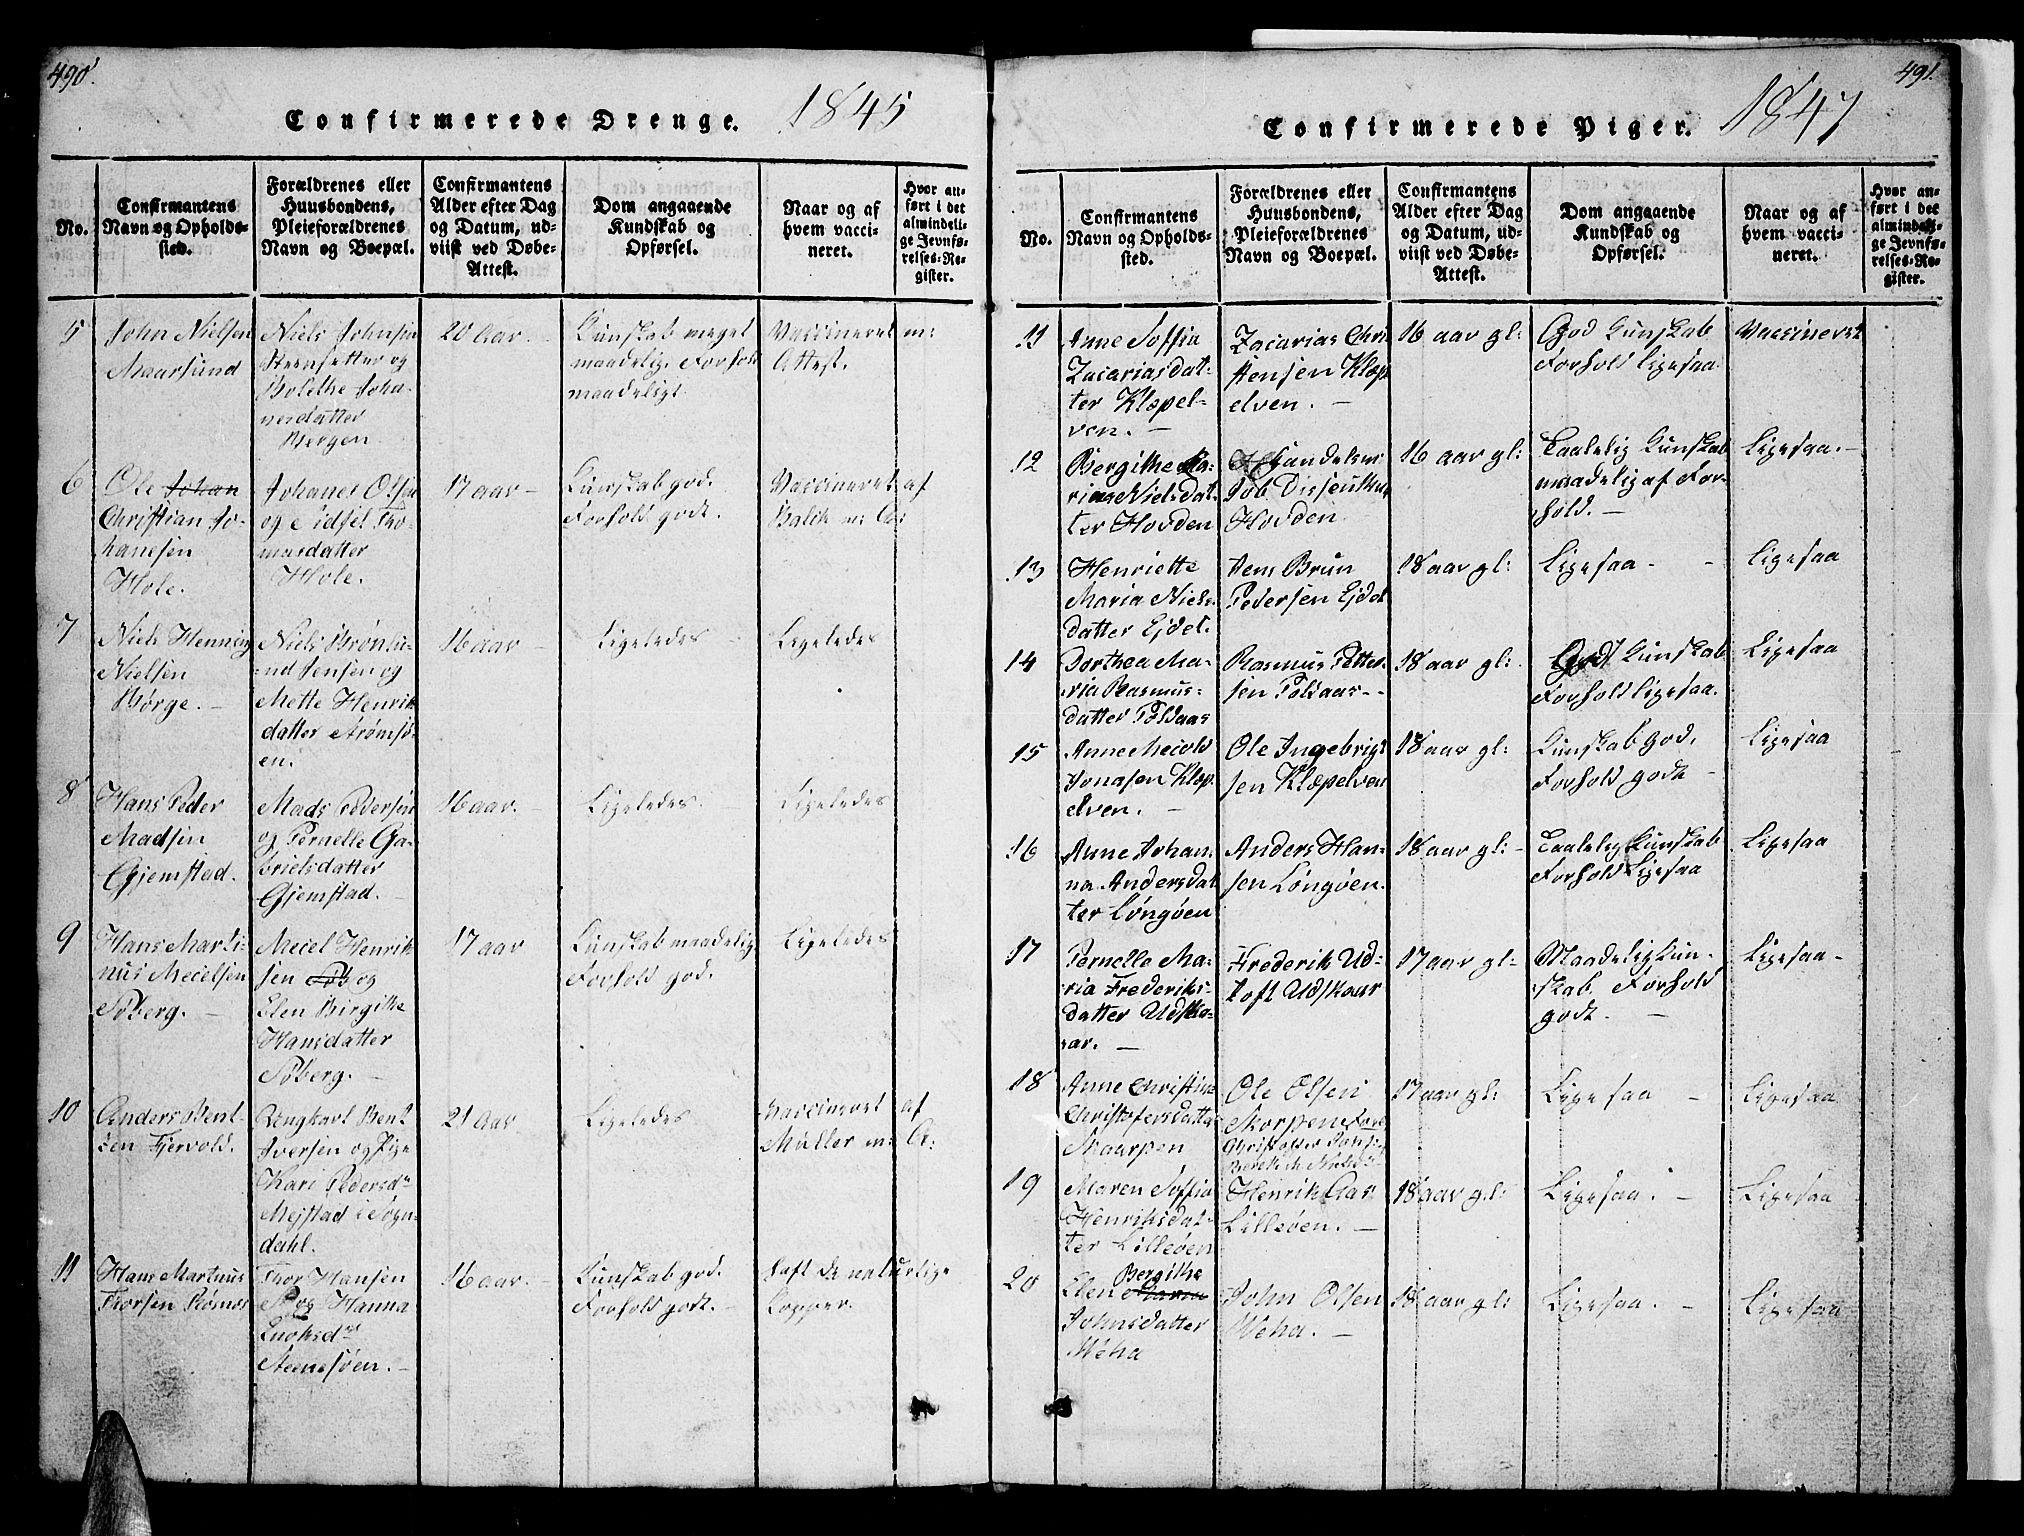 490.
Confirmerede Drenge. 1845
No.
Confirmantens
Navn og Opholds-
sted.
Forældrenes eller
Huusbondens,
Pleieforældrenes
Navn og Boepæl.
Confirmantens
Alder efter Dag
og Datum, ud-
viist ved Døbe-
Attest.
Dom angaaende
Kundskab og
Opførsel.
Naar og af
hvem vacci-
neret.
Hvor an-
ført i det
almindeli-
ge Jevnfø-
relses-Re-
gister.
5
John Nielsen
Maarsund
Niels Johnsen
Steensetter og
Bolethe Joha-
nesdatter
Bergen
20 Aar
Kunskab meget
maadelig. Forhold
maadeligt
Vaccineret m:
Attest.
6
Ole Johan
Christian Jo-
hanesen
Hole.
Johanes Olsen
og Eidsel Tho-
masdatter
Hole.
17 aar -
Kunskab god.
Forhold godt.
Vaccineret af
Balik m: A:
7
Niels Henning
Nielsen
Børge. -
Niels Brønlu-
nd Jensen og
Mette Henrik
datter Strømsø-
en.
16 aar -
Ligeledes -
Ligeledes
8
Hans Peder
Madsen
Gjemstad.
Mads Pedersen
og Pernelle Ga-
brielsdatter
Gjemstad. -
16 aar. -
Ligeledes.
Ligeledes
9
Hans Marti-
nus Mecelsen
Søberg. -
Mecel Henrik-
sen Søb og
Elen Birgithe
Hansdatter
Søberg. -
17 aar
Kunskab maadelig
Forhold god.
Ligeledes
10
Anders Bent-
zen Fjervold.
Ungkarl Bent
Iversen og Pige
Kari Pedersdr
Mejstad i Sogn-
dahl.
21 aar
Ligeledes
Vaccineret af
Müller m: A:
11
Hans Martnus
Thorsen Rømnes
Thor Hansen
R og Hanna
Enoksdr
Steensøen. -
16 aar. -
Kunskab god.
Forhold godt. -
Haft de naturlige
Kopper.
491.
Confirmerede Piger. 1847
No.
Confirmantens
Navn og Opholds-
sted.
Forældrenes eller
Huusbondens,
Pleieforældrenes
Navn og Boepæl.
Confirmantens
Alder efter Dag
og Datum, ud-
viist ved Døbe-
Attest.
Dom angaaende
Kundskab og
Opførsel.
Naar og af
hvem vacci-
neret.
Hvor an-
ført i det
almindeli-
ge Jevnfø-
relses-Re-
gister.
11
Anne Soffia
Zacariasdat-
ter Klæpel-
ven. -
Zacarias Chri
stensen Klæp
elven. -
16 aar gl:
God Kunskab
Forhold ligesaa
Vaccineret
12
Bergithe Ma-
rie Nielsdat-
ter Hovden
Handelsm:
Job Dissenthun
Hovden
16 aar gl:
Taalelig Kunskab
maadelig af For-
hold. -
Ligesaa. -
13
Henriette
Maria Niels
datter Ejdet.
Jens Brun
Pedersen Ejdet
18 aar gl:
Ligesaa - -
Ligesaa
14
Dorthea Ma-
ria Rasmus-
datter Foldaas
Rasmus Petter
sen Foldaas - -
18 aar gl:
God Kunskab
Forhold ligesaa.
Ligesaa
15
Anne Mecold
Jonasen Klæp
elven. -
Ole Ingebrigt
sen Klæpelven
18 aar gl:
Kunskab god,
Forhold godt -
Ligesaa
16
Anne Johan-
na Andersdat
ter Longøen
Anders Han-
sen Longøen.
18 aar gl: -
Taalelig Kunskab
Forhold Ligesaa
Ligesaa
17
Pernelle Ma-
ria Frederiks-
datter Udska-
ar. -
Frederik Ud-
toft Udskaar
17 aar gl:
Maadelig Kun-
skab. Forhold
godt. -
Ligesaa -
18
Anne Christine
Christofersdatter
Skaarpen
Ole Olsen
Skorpen
Christoffer
17 aar gl:
Ligesaa -
Ligesaa
19
Maren Soffia
Henriksdat-
ter Lilleøen
Henrik Aas
Lilleøen. -
18 aar gl:
Ligesaa. -
Ligesaa
20
Bergithe
Elen Maria
Johnsdatter
Weha
John Olsen
Weha. -
18 aar gl:
Ligesaa. -
Ligesaa